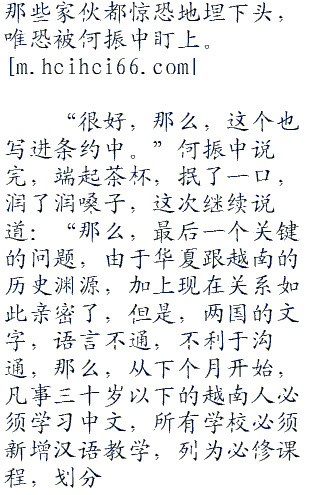 那些家伙都惊恐地埋下头，
唯恐被何振中盯上。
[m.hcihci66.com]
“很好，那么，这个也
写进条约中。”何振中说
完，端起茶杯，抿了一口，
润了润嗓子，这次继续说
道：“那么，最后一个关键
的问题，由于华夏跟越南的
历史渊源，加上现在关系如
此亲密了，但是，两国的文
字，语言不通，不利于沟
通，那么，从下个月开始，
凡事三十岁以下的越南人必
须学习中文，所有学校必须
新增汉语教学，列为必修课
程，划分